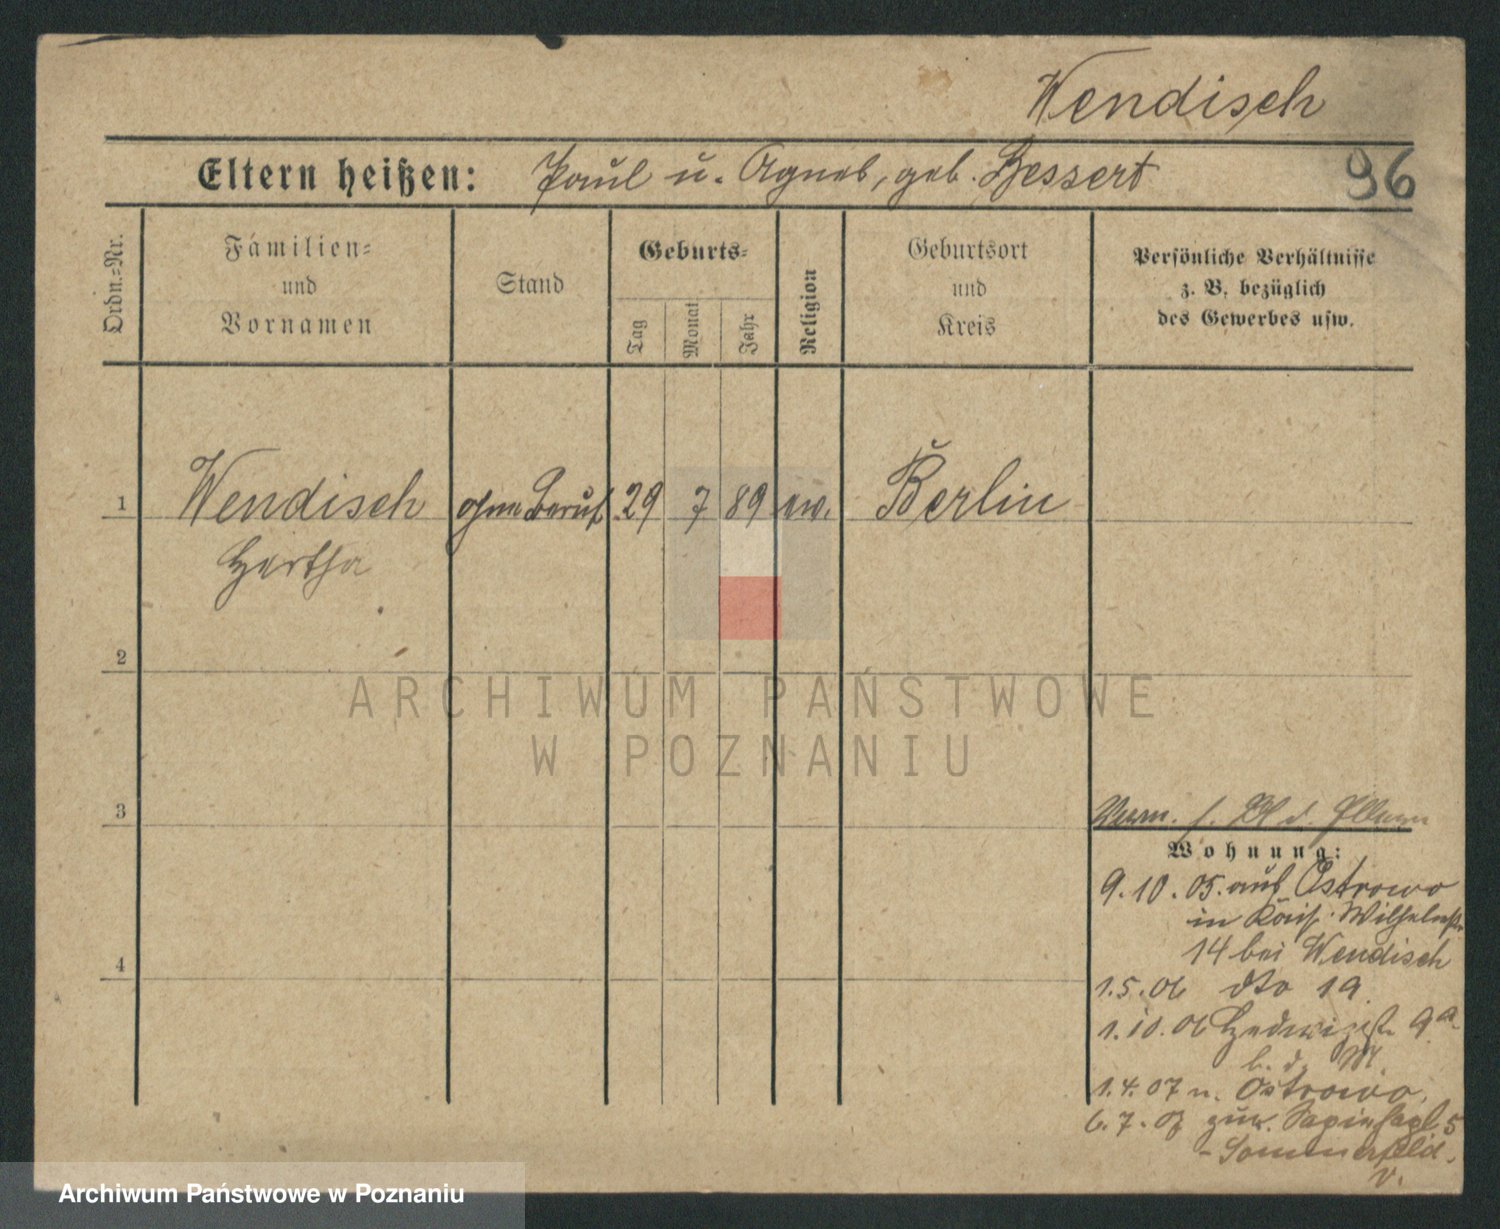 Wendisch
Eltern heißen: Paul u. Agnes, geb. Bessert
96
Ordn.=Nr.
Familien=
und
Vornamen
Stand
Geburts=
Tag
Monat
Jahr
Religion
Geburtsort
und
Kreis
Persönliche Verhältnisse
z. B. bezüglich
des Gewerbes usw.
1 Wendisch ohne Beruf 29 7 89 ev. Berlin
Hertha
2
ARCHIWUM PAŃSTWOWE
W POZNANIU
3
Wohnung:
9.10.05. aus Ostrowo
in Kais. Wilhelmstr.
14 bei Wendisch
4
1.5.06 dto 19
1.10.06 Hedwigstr. 9a.
b. d. M.
1.4.07 n. Ostrowo.
6.7.07 zur. Sapiehapl. 5
- Sommerfeld.
v.
Archiwum Państwowe w Poznaniu